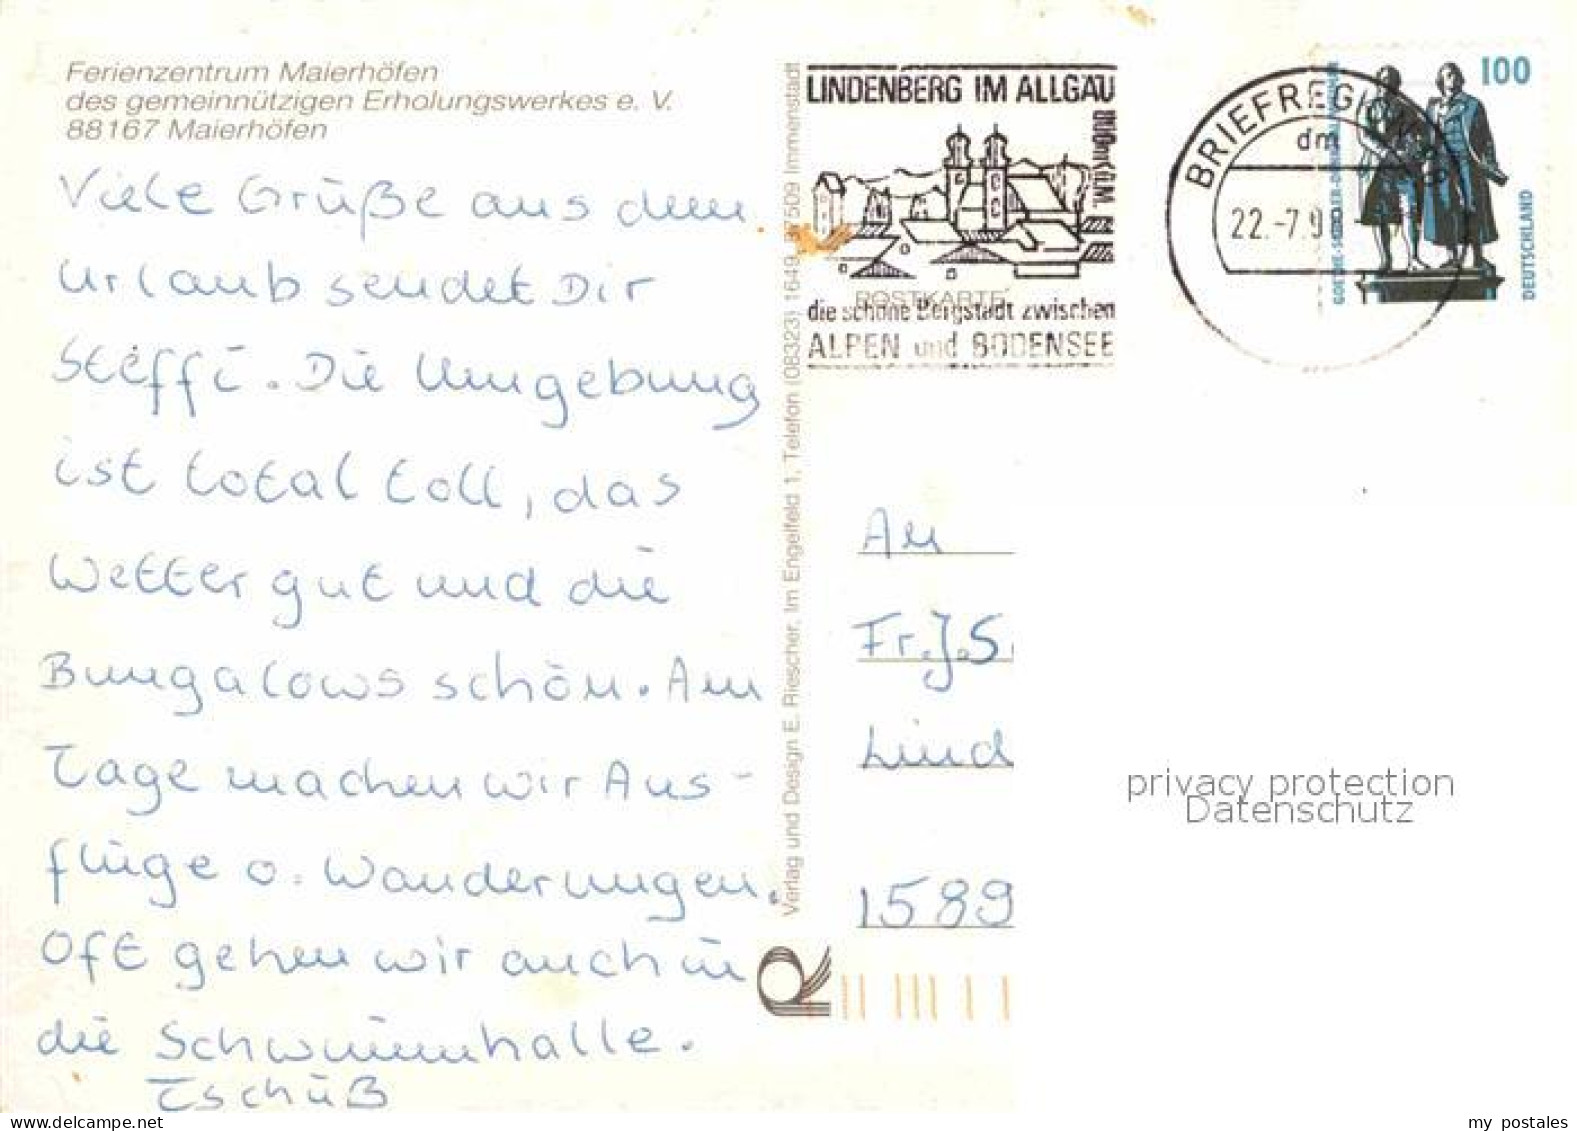 Ferienzentrum Maierhöfen
des gemeinnützigen Erholungswerkes e. V.
88167 Maierhöfen
Viele Grüße aus dem
Urlaub sendet Dir
Steffi. Die Umgebung
ist total toll, das
Wetter gut und die
Bungalows schön. Am
Tage machen wir Aus-
flüge o. Wanderungen.
Oft gehen wir auch in
die Schwimmhalle.
Tschüß
Verlag und Design E. Riescher, Im Engelfeld 1, Telefon (08323) 1649, 87509 Immenstadt
LINDENBERG IM ALLGÄU
POSTKARTE
die schöne Bergstadt zwischen
ALPEN und BODENSEE
BRIEFREGION
dm
22.-7.9
100
DEUTSCHLAND
An
Fr. J. S
Lind
1589
privacy protection
Datenschutz
www.delcampe.net
my_postales